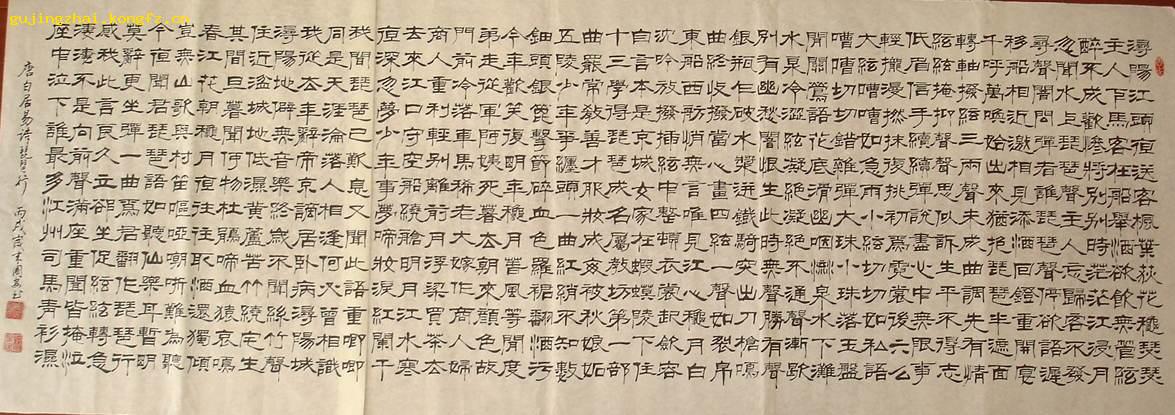 gujingzhai.kongfz.cn
潯陽江頭夜送客楓葉荻花秋瑟瑟
主人下馬客在船舉酒欲飲無管絃
醉不成歡慘將別別時茫茫江浸月
忽聞水上琵琶聲主人忘歸客不發
尋聲闇問彈者誰琵琶聲停欲語遲
移船相近邀相見添酒回鐙重開宴
千呼萬喚始出來猶抱琵琶半遮面
轉軸撥絃三兩聲未成曲調先有情
絃絃掩抑聲聲思似訴生平不得志
低眉信手續續彈說盡心中無限事
輕攏漫撚抹復挑初為霓裳後六么
大絃嘈嘈如急雨小絃切切如私語
嘈嘈切切錯雜彈大珠小珠落玉盤
閒關鶯語花底滑幽咽泉流水下灘
水泉冷澀絃凝絕凝絕不通聲漸歇
別有幽愁闇恨生此時無聲勝有聲
銀瓶乍破水漿迸鐵騎突出刀槍鳴
曲終收撥當心畫四絃一聲如裂帛
東船西舫悄無言唯見江心秋月白
沈吟放撥插絃中整頓衣裳起斂容
自言本是京城女家在蝦蟆陵下住
十三學得琵琶成名屬教坊第一部
曲罷常教善才服妝成每被秋娘妒
五陵少年爭纏頭一曲紅綃不知數
鈿頭銀篦擊節碎血色羅裙翻酒污
今年歡笑復明年秋月春風等閒度
弟走從軍阿姨死暮去朝來顏色故
門前冷落車馬稀老大嫁作商人婦
商人重利輕別離前月浮梁買茶去
去來江口守空船繞艙明月江水寒
夜深忽夢少年事夢啼妝淚紅闌干
我聞琵琶已歎息又聞此語重唧唧
同是天涯淪落人相逢何必曾相識
我從去年辭帝京謫居臥病潯陽城
潯陽地僻無音樂終歲不聞絲竹聲
住近湓城地低濕黃蘆苦竹繞宅生
其間旦暮聞何物杜鵑啼血猿哀鳴
春江花朝秋月夜往往取酒還獨傾
豈無山歌與村笛嘔啞嘲哳難為聽
今夜聞君琵琶語如聽仙樂耳暫明
莫辭更坐彈一曲為君翻作琵琶行
感我此言良久立卻坐促絃絃轉急
淒淒不似向前聲滿座重聞皆掩泣
座中泣下誰最多江州司馬青衫濕
唐白居易詩琵琶行 丙戌